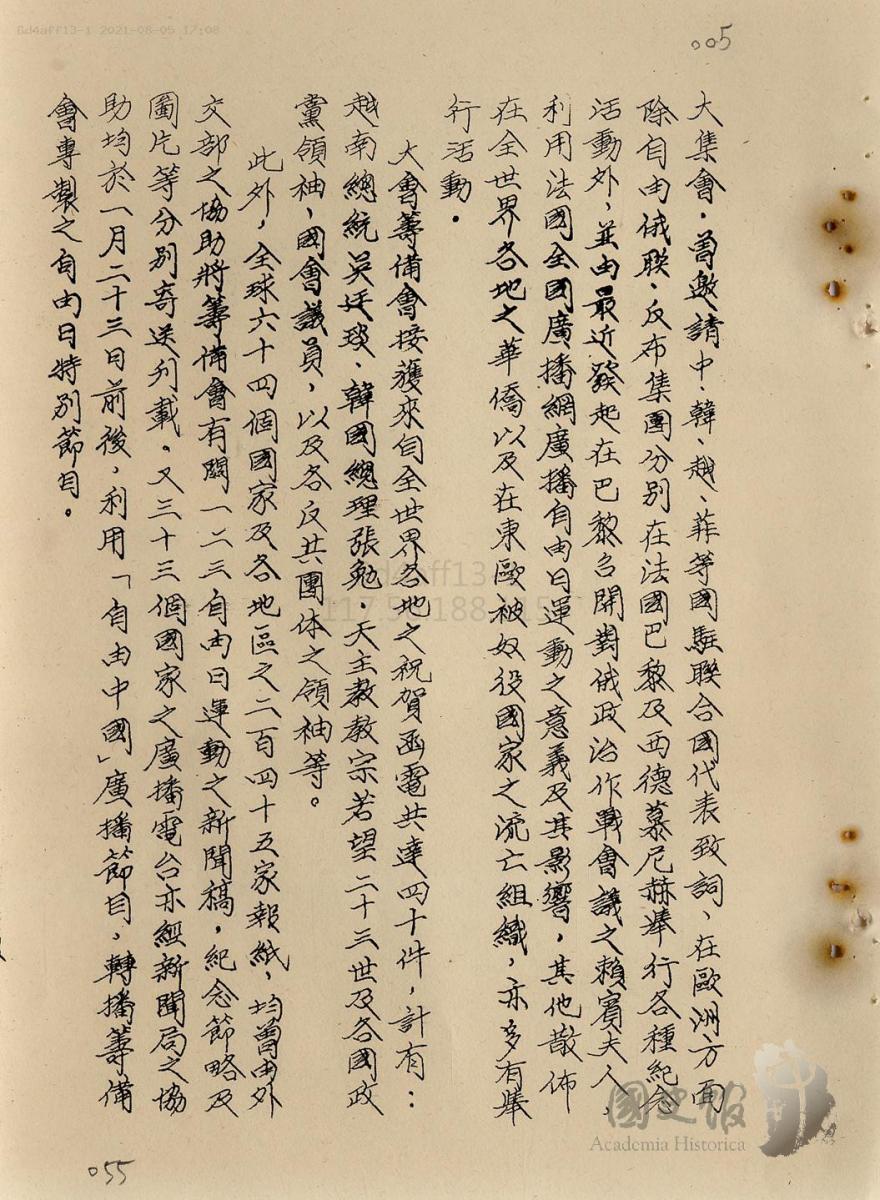 6d4aff13-1 2021-08-05 17:08
005
大集會，曾邀請中、韓、越、菲等國駐聯合國代表致詞、在歐洲方面
除自由俄聯、反布集團分別在法國巴黎及西德慕尼赫舉行各種紀念
活動外，並由最近發起在巴黎召開對俄政治作戰會議之賴賓夫人，
利用法國全國廣播網廣播自由日運動之意義及其影響，其他散佈
在全世界各地之華僑以及在東歐被奴役國家之流亡組織，亦多有舉
行活動。
大會籌備會接獲來自全世界各地之祝賀函電共達四十件，計有：
越南總統吳廷琰、韓國總理張勉、天主教教宗若望二十三世及各國政
黨領袖，國會議員，以及各反共團体之領袖等。
此外，全球六十四個國家及各地區之二百四十五家報紙，均曾由外
交部之協助將籌備會有關一二三自由日運動之新聞稿，紀念節略及
圖片等分別寄送刋載。又三十三個國家之廣播電台亦經新聞局之協
助均於一月二十三日前後，利用「自由中國」廣播節目，轉播籌備
會專製之自由日特別節目。
055
國史館
Academia Historica